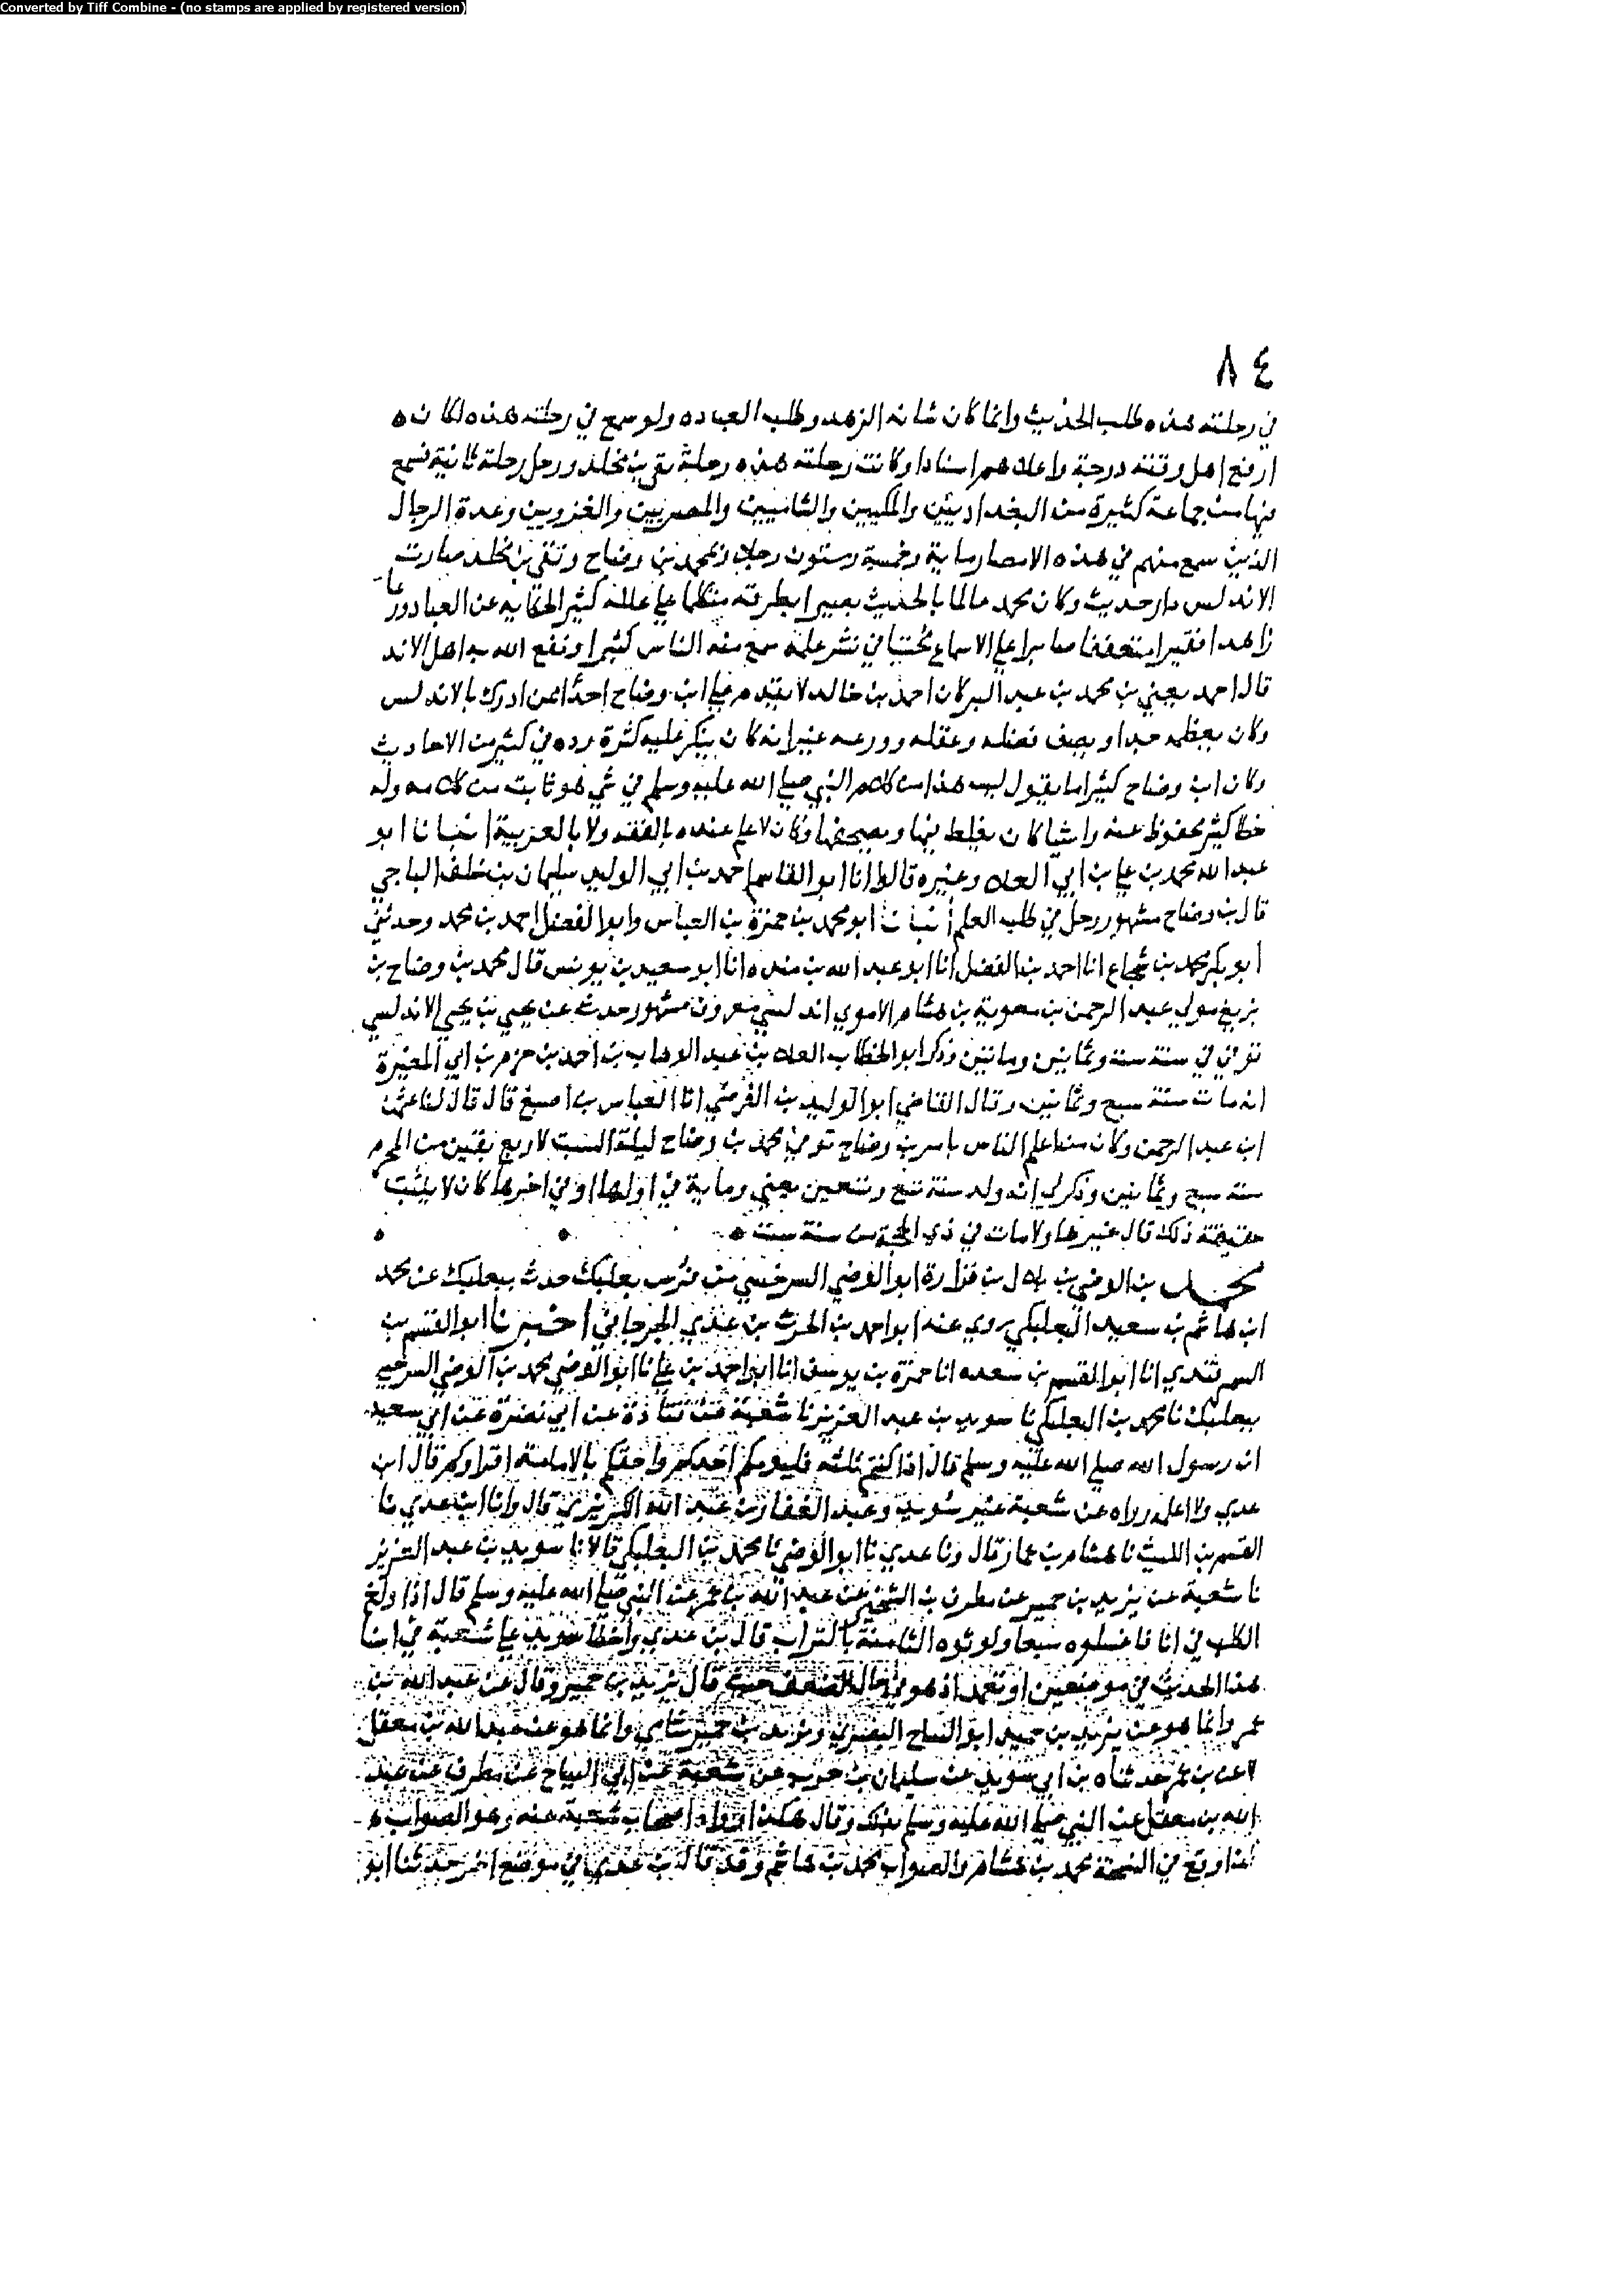 Converted by Tiff Combine - (no stamps are applied by registered version)
٨٤
في رحلته هذه طلب الحديث وانما كان شانه الزهد وطلب العباده ولو سمع في رحلته هذه لكان ه
ارفع اهل وقته درجة واعلاهم اسنادا وكانت رحلته هذه رحلة بقي بن مخلد ورحل رحلة ثانية فسمع
فيها من جماعة كثيرة من البغداديين والمكيين والشاميين والمصريين والقزويين وعدة الرجال
الذين سمع منهم في هذه الامصار ماية وخمسة وستون رجلا وبمحمد بن وضاح وبقي بن مخلد صارت
الاندلس دار حديث وكان محمد عالما بالحديث بصيرا بطرقه متكلما علي علله كثير الحكايه عن العباد ورعا
زاهدا فقيرا متعففا صابرا علي الاسماع محتسبا في نشر علمه سمع منه الناس كثيرا ونفع الله به اهل الاند
قال احمد يعني بن محمد بن عبد البر كان احمد بن خالد لا يقدم علي ابن وضاح احدًا ممن ادرك بالاندلس
وكان يعظمه جدا ويصف فضله وعقله وورعه غير انه كان ينكر عليه كثرة رده في كثير من الاحاديث
وكان ابن وضاح كثيرا ما يقول ليس هذا من كلام النبي صلي الله عليه وسلم في شي هو ثابت من كلامه وله
خطا كثير محفوظ عنه واشيا كان يغلط فيها ويصحفها وكان لا علم عنده بالفقه ولا بالعربية انبانا ابو
عبد الله محمد بن علي بن ابي العلا وغيره قالوا انا ابو القاسم احمد بن ابي الوليد سليمان بن خلف الباجي
قال بن وضاح مشهور رحل في طلب العلم انبانا ابو محمد بن حمزة بن العباس وابو الفضل احمد بن محمد وحدثني
ابو بكر محمد بن شجاع انا احمد بن الفضل انا ابو عبد الله بن منده انا ابو سعيد بن يونس قال محمد بن وضاح بن
بزيغ مولي عبد الرحمن بن معوية بن هشام الاموي اندلسي معروف مشهور حدث عن يحيي بن يحيي الاندلسي
توفي في سنة ستة وثمانين وماتين وذكر ابو الخطاب العلا بن عبد الوهاب بن احمد بن حزم بن ابي المغيرة
انه مات سنة سبع وثمانين وقال القاضي ابو الوليد بن الفرضي انا العباس بن اصبغ قال قال لنا عثمن
ابن عبد الرحمن وكان من اعلم الناس بامر بن وضاح توفي محمد بن وضاح ليلة السبت لاربع بقين من المحرم
سنة سبع وثمانين وذكر لي انه ولد سنة تسع وتسعين يعني وماية في اولها او في اخرها كان لا يثبت
حقيقة ذلك قال غيرها ولا مات في ذي الحجة من سنة ستة ه
محمد بن الوضي بن هلال بن فزارة ابو الوضي السرخسي من فرس بعلبك حدث ببعلبك عن محمد
ابن هاشم بن سعيد البعلبكي روي عنه ابو احمد بن الحرث بن عدي الجرجاني اخبرنا ابو القسم بن
السمرقندي انا ابو القسم بن مسعده انا حمزة بن يوسف انا ابو احمد بن علي نا ابو الوضي محمد بن الوضي السرخسي
ببعلبك نا محمد بن البعلبكي نا سويد بن عبد العزيز نا شعبة عن قتادة عن ابي نضرة عن ابي سعيد
ان رسول الله صلي الله عليه وسلم قال اذا كنتم ثلثه فليومكم احدكم واحقكم بالامامة اقراوكم قال ابن
عدي ولا اعلم رواه عن شعبة غير سويد وعبد الغفار بن عبد الله الكريزي قال وانا ابن عدي نا
القسم بن الليث نا هشام بن عمار قال ونا عدي نا ابو الوضي نا محمد بن البعلبكي قالا نا سويد بن عبد العزيز
نا شعبة عن يزيد بن حمير عن مطرف بن الشخير عن عبد الله بن عمر عن النبي صلي الله عليه وسلم قال اذا ولغ
الكلب في انا فاغسلوه سبعا ولوثوه الثامنة بالتراب قال بن عدي واخطا سويد علي شعبة في اسنا
هذا الحديث في موضعين او تعمد اذ هو في حال الضعف حيث قال يزيد بن حمير وقال عن عبد الله بن
عمر وانما هو عن يزيد بن حميد ابو التياح البصري ويزيد بن حمير شامي وانما هو عن عبد الله بن معقل
لا عن بن عمر حدثناه بن ابي سويد عن سليمان بن حرب عن شعبة عن ابي التياح عن مطرف عن عبد
الله بن معقل عن النبي صلي الله عليه وسلم بذلك وقال هكذا رواه اصحاب شعبة عنه وهو الصواب ه
هذا وقع في النسخة محمد بن هشام والصواب محمد بن هاشم وقد قال بن عدي في موضع اخر حدثنا ابو